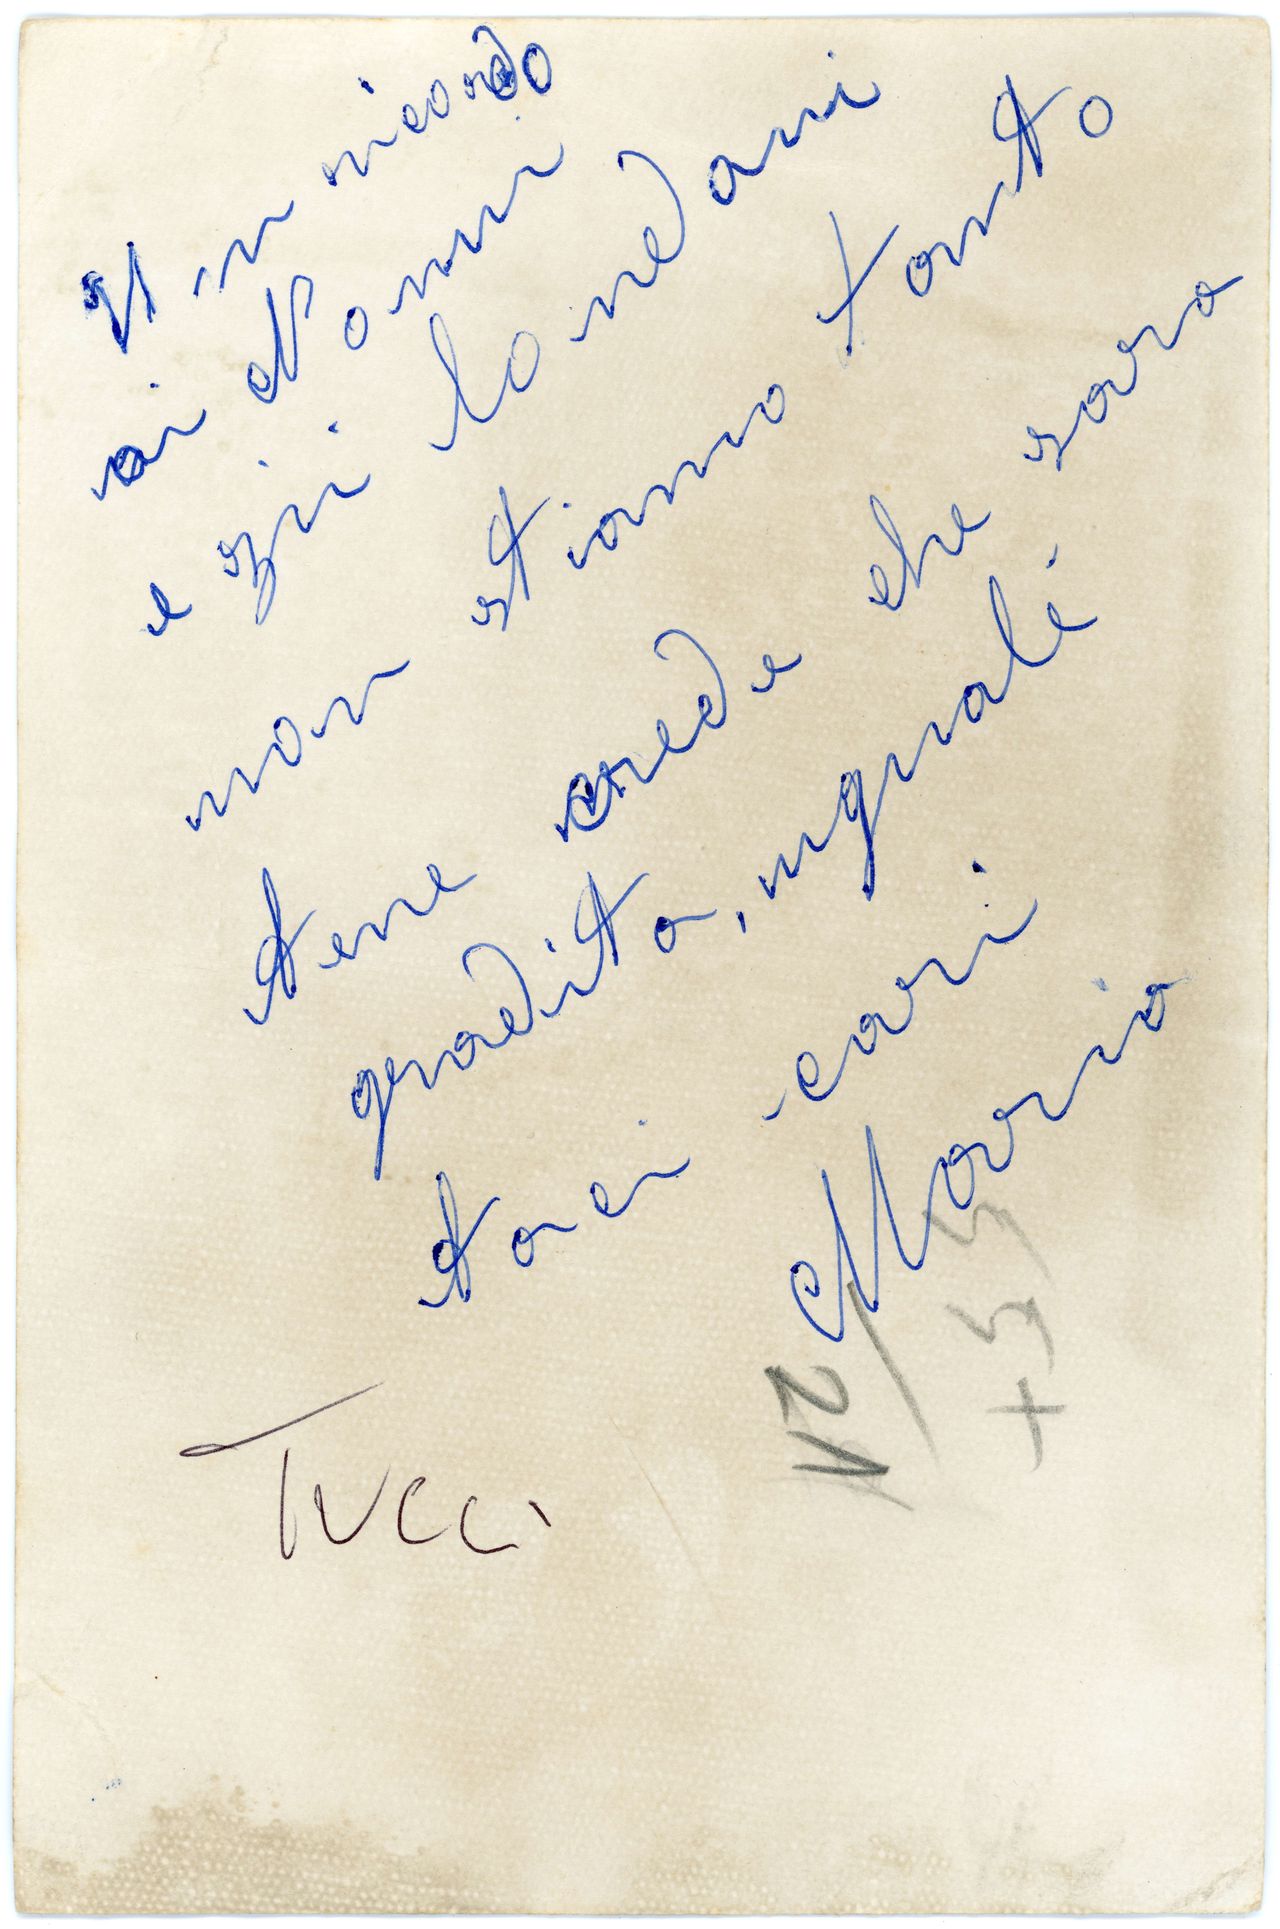 in ricordo
ai Nonni
e zii lonedani
non stiamo tanto
bene crede che sara
gradita, uguale
baci cari
Mario
Tucci